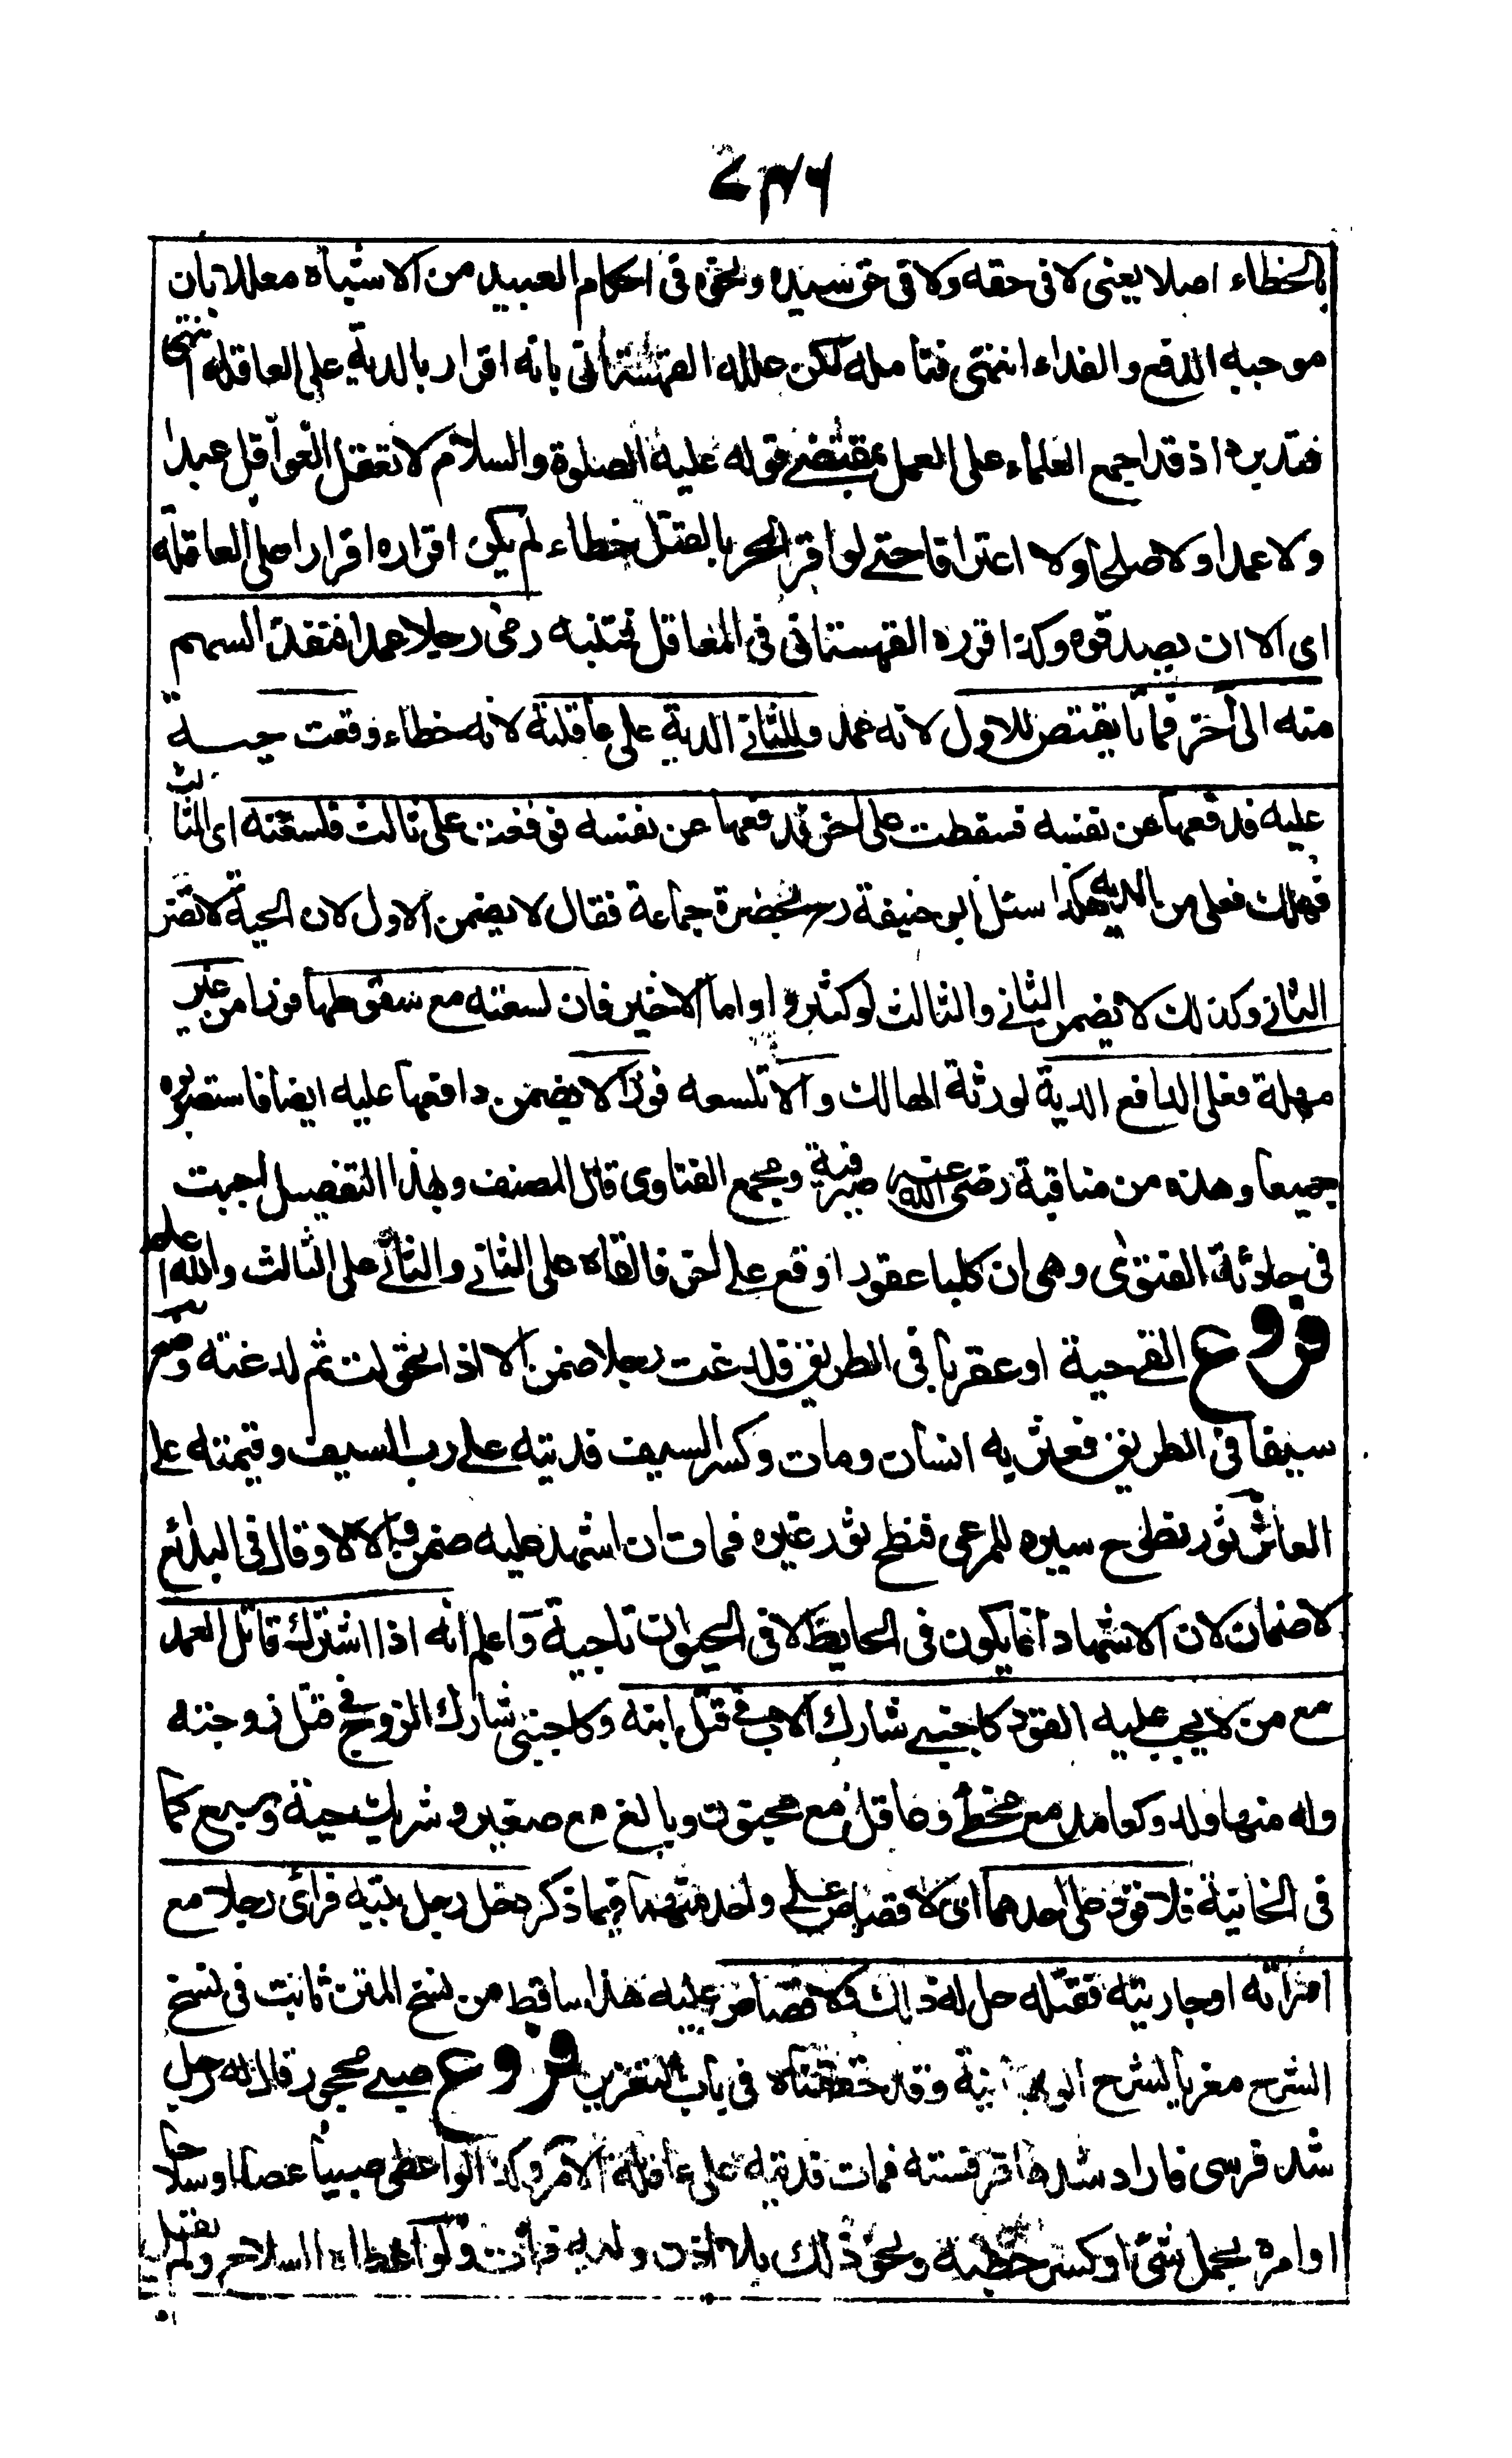 بالخطاء اصلا يعنى لا فى حقه ولا فى حق سيده ونحوه فى احكام العبيد من الاشباه معللا بان
موجبه الدفع والفداء انتهى فتامله لكن علله القهستانى بانه اقرار بالدية على العاقله انتهى
فتدبره اذ قد اجمع العلماء على العمل بمقتضى قوله عليه الصلوة والسلام لا تعقل العواقل عبدا
ولا عمدا ولا صلحا ولا اعترافا حتى لو اقر الحر بالقتل خطاء لم يكن اقراره اقرارا على العاقلة
اى الا ان يصدقوه وكذا قرره القهستانى فى المعاقل فتنبه رمى رجلا عمدا فنفذ السهم
منه الى آخر فماتا يقتص للاول لانه عمد وللثانى الدية على عاقلته لانه خطاء وقعت حية
عليه فدفعها عن نفسه فسقطت على اخر فدفعها عن نفسه فوقعت على ثالث فلسعته اى الثالث
فهلك فعلى من الدية هكذا سئل ابو حنيفة رح بحضرة جماعة فقال لا يضمن الاول لان الحية لا تضر
الثانى وكذلك لا يضمن الثانى والثالث لو كثروا واما الاخير فان لسعته مع سقوطها فورا من غير
مهلة فعلى الدافع الدية لورثة الهالك والا تلسعه فورا لا يضمن دافعها عليه ايضا فاستصوبوه
جميعا وهذه من مناقبة رضى الله عنه صيرفية ومجمع الفتاوى قال المصنف وبهذا التفصيل اجبت
فى حادثة الفتوى وهى ان كلبا عقورا وقع على اخر فالقاه على الثانى والثانى على الثالث والله اعلم
فروع القى حية او عقربا فى الطريق فلدغت رجلا ضمن الا اذا تحولت ثم لدغته وضع
سيفا فى الطريق فعثر به انسان ومات وكسر السيف فديته على رب السيف وقيمته على
العاثر ثور نطوح سيره للمرعى فنطح ثور غيره فمات ان اشهد عليه ضمن والا لا وقال فى البدائع
لا ضمان لان الاشهاد انما يكون فى الحايط لا فى الحيوان تاجية واعلم انه اذا اشترك قاتل العمد
مع من لا يجب عليه القود كاجنبى شارك الاب فى قتل ابنه وكاجنبى شارك الزوج فى قتل زوجته
وله منها ولد وكعامد مع مخطئ وعاقل مع مجنون وبالغ مع صغير وشريك حية وسبع كما
فى الخانية فلا قود على احدهما اى لا قصاص على واحد منهما فيما ذكر دخل رجل بيته فرأى رجلا مع
امراته او جاريته فقتله حل له ذلك ولا قصاص عليه هذا ساقط من نسخ المتن ثابت فى نسخ
الشرح معزيا لشرح الوهبانية وقد حققناه فى باب التعزير فروع صبى محجور قال له رجل
شد فرسى فاراد شدها فرفسته فمات فديته على عاقلة الآمر وكذا لو اعطى صبيا عصا او سلاحا
او امره بحمل شئ او كسر حطب ونحو ذلك بلا اذن وليه فمات ولو اعطاه السلاح ولم يقل